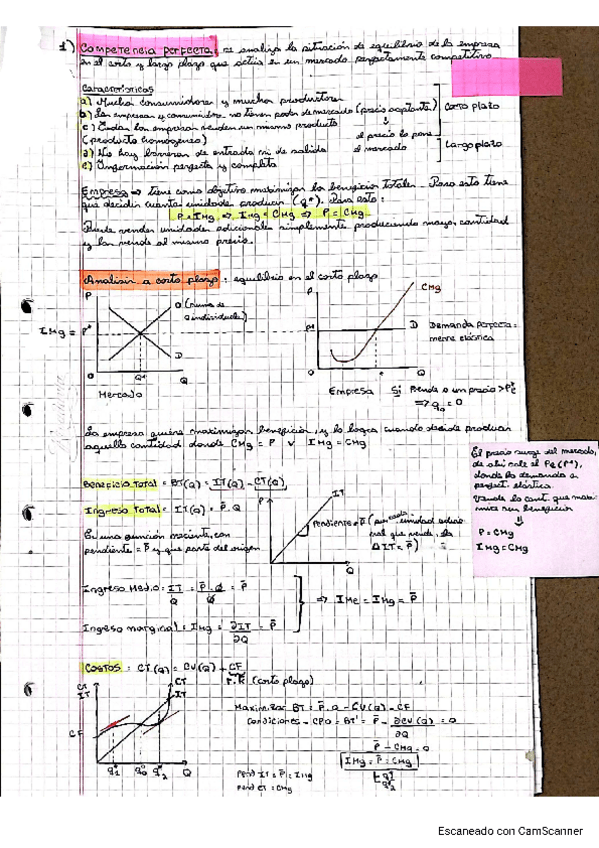 1) Competencia perfecta: se analiza la situación de equilibrio de la empresa
en el corto y largo plazo que actúa en un mercado perfectamente competitivo.
Características
a) Muchos consumidores y muchos productores
b) Las empresas y consumidores no tienen poder de mercado (precio aceptante)
c) Todas las empresas venden un mismo producto
(producto homogéneo)
el precio lo pone
el mercado
d) No hay barreras de entrada ni de salida
e) Información perfecta y completa
Corto plazo
Largo plazo
Empresa ⇒ tiene como objetivo maximizar los beneficios totales. Para esto tiene
que decidir cuantas unidades producir (q*). Para esto:
P = IMg ⇒ IMg = CMg ⇒ P = CMg
Puede vender unidades adicionales simplemente produciendo mayor cantidad
y las vende al mismo precio.
Analisis a corto plazo: equilibrio en el corto plazo
P
O (suma de
O individuales)
IMg = P*
D
O
Q*
Q
Mercado
P
CMg
P*
D Demanda perfecta-
mente elástica
O
Q
Empresa
Si Vende a un precio > P*
⇒ q = 0
La empresa quiere maximizar beneficios, y lo logra cuando decide producir
aquella cantidad donde CMg = P v IMg = CMg
El precio surge del mercado,
de ahí sale el Pe (P*),
donde la demanda es
perfect. elástica.
Vende la cant. que maxi
miza sus beneficios
⇓
P = CMg
IMg = CMg
Beneficio Total = BT(Q) = IT(Q) - CT(Q)
Ingreso Total = IT(Q) = P̄.Q
Es una función creciente, con
pendiente = P̄ y que parte del origen
P
IT
Pendiente = P̄ (por cada unidad adicio
nal que vende, la
ΔIT = P̄)
Q
Ingreso Medio = IT/Q = P̄.Q/Q = P̄
Ingreso marginal = IMg = ∂IT/∂Q = P̄
⇒ IMe = IMg = P̄
Costos: CT(Q) = CV(Q) + CF
(corto plazo)
CT
IT
CT
IT
CF
q1 q0 q2 Q
Maximizar BT = P̄.Q - CV(Q) - CF
Condiciones - CPO - BT' = P̄ - ∂CV(Q)/∂Q = 0
P̄ - CMg = 0
IMg = P̄ = CMg
q1
q2
Pend IT = P̄ = IMg
Pend CT = CMg
Escaneado con CamScanner